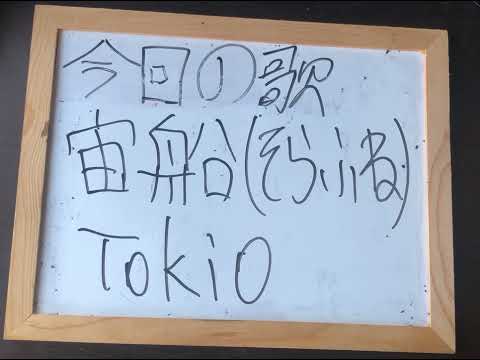 今日の歌
宙船(そらふね)
TokiO